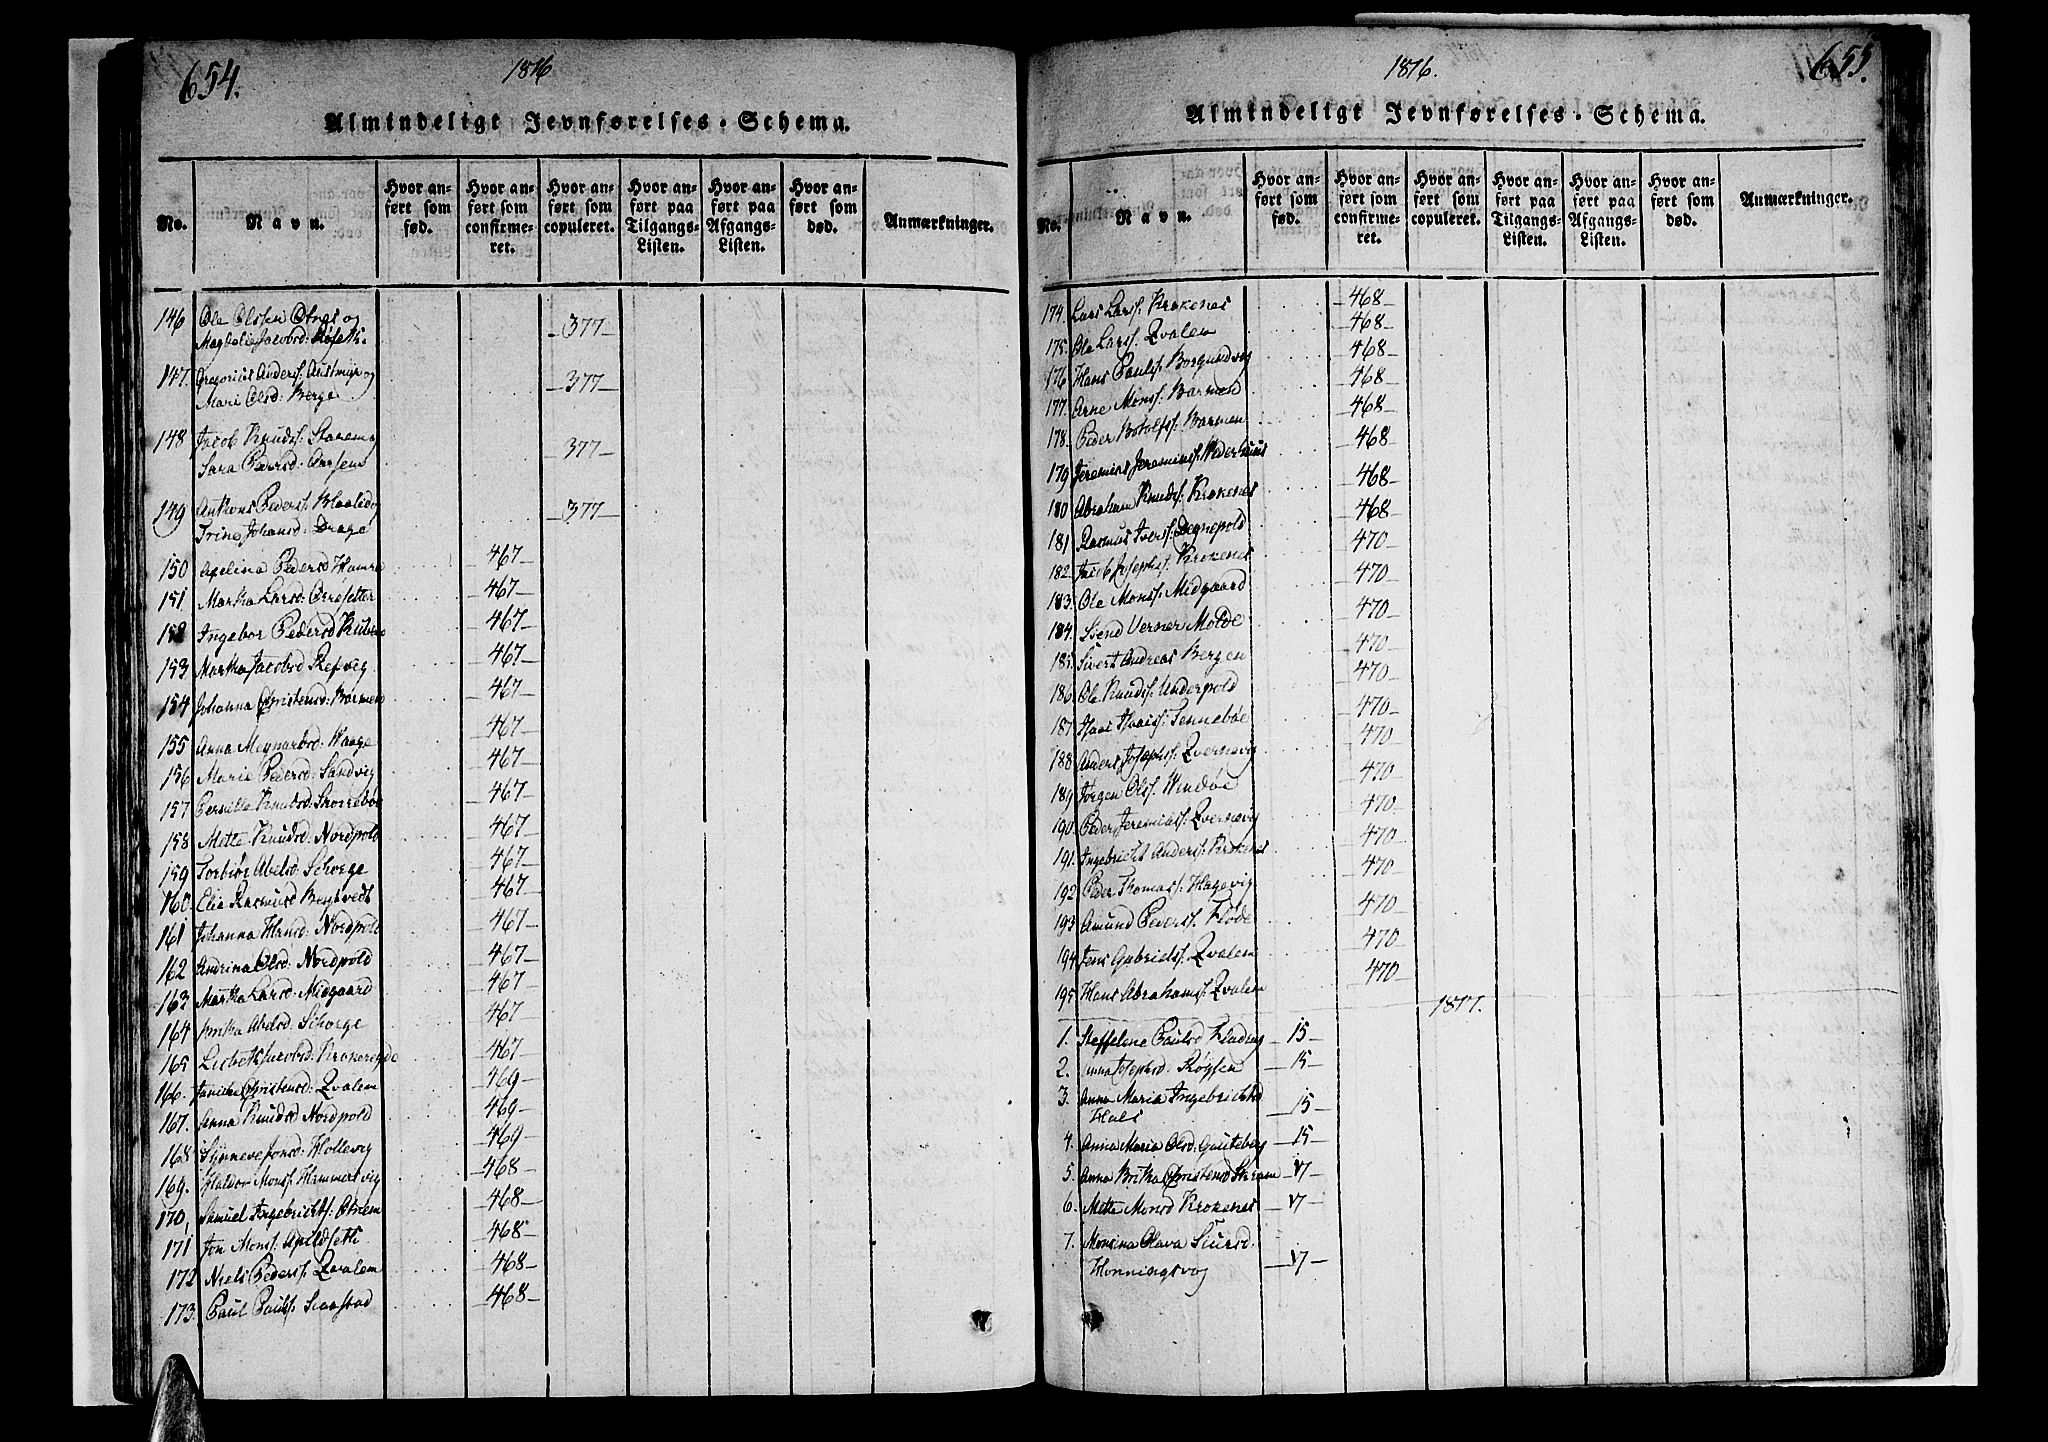 654.
1816
Almindeligt Jevnførelses-Schema.
No.
Navn.
Hvor anført som fød.
Hvor anført som confirmeret.
Hvor anført som copuleret.
Hvor anført paa Tilgangs-Listen.
Hvor anført paa Afgangs-Listen.
Hvor anført som død.
Anmærkninger.
146 Ole Olsen og
Magdalie Jacobsd: —377—
147. Gregorius Anders: og
Mari Olsd: Berge —377—
148 Jacob Knuds:
Sara Pedersd: —377—
149 Anthons Peders:
Trine Johansd: Drage —377—
150 Pedersd —467—
151 Martha Larsd: —467—
152 Ingebor Pedersd —467—
153 Martha Jacobsd Refvig —467—
154 Johanna Christensd: Barmen —467—
155 Anna Meynardsd: Waage —467—
156 Marie Pedersd: Sandvig —467—
157 Pernille Knudsd: —467—
158 Mette Knudsd: Nordpold —467—
159 Torbiør Abelsd: Schorge —467—
160 Elie Rasmusd —467—
161 Johanna Hansd: Nordpold —467—
162 Andrina Olsd: Nordpold —467—
163 Martha Larsd: Midgaard —467—
164 Abelsd: Schorge —467—
165 Lisbeth Jacobsd: —467—
166. Christensd: Qvalem —469—
167. Anna Knudsd Nordpold —469—
168 Synneve Jonsd: —469—
169. Haldor Mons: Hammersvig —468—
170, Samuel Ingebrigts: —468—
171 Jon Mons: —468—
172 Niels Peders: Qvalem —468—
173. Paul Pauls: —468—
655.
1816.
Almindeligt Jevnførelses-Schema.
No.
Navn.
Hvor anført som fød.
Hvor anført som confirmeret.
Hvor anført som copuleret.
Hvor anført paa Tilgangs-Listen.
Hvor anført paa Afgangs-Listen.
Hvor anført som død.
Anmærkninger.
174. Lars Lars: Krokenes —468—
175. Ole Lars: Qvalem —468—
176 Hans Pauls: Borgundvog —468—
177. Arne Mons: Barmen —468—
178. Peder Botolfs: Barmen —468—
179 Jeremias Jeremias: —468—
180 Abraham Knuds: Krokenes —468—
181 Rasmus Ivers: Degnepold —468—
182. Jacob Josephs: Krokenes —470—
183. Ole Mons: Midgaard —470—
184. Svend Verner Molde —470—
185. Sivert Andreas Bergen —470—
186. Ole Knuds: Underpold —470—
187 Isaac Isacs: Tennebøe —470—
188 Anders Josephs: Qvernevig —470—
189 Jørgen Ols: Windøe —470—
190. Peder Jeremias: Qvernevig —470—
191. Ingebricht Anders: Krokenes —470—
192 Peder Thomas: Hagevig —470—
193 Amund Peders: Flöde —470—
194 Jens Gabriels: Qvalem —470—
195 Hans Abrahams: Qvalem —470—
1817.
1. Steffelene Paulsd —15—
2. Anna Josephsd: Röysen —15—
3. Anna Maria Ingebrichtsd
Hals —15—
4. Anna Maria Olsd: —15—
5. Anna Britha Christensd —17—
6. Mette Monsd Krokenes —17—
7. Monsina Olava Siursd:
Honningsvog —17—